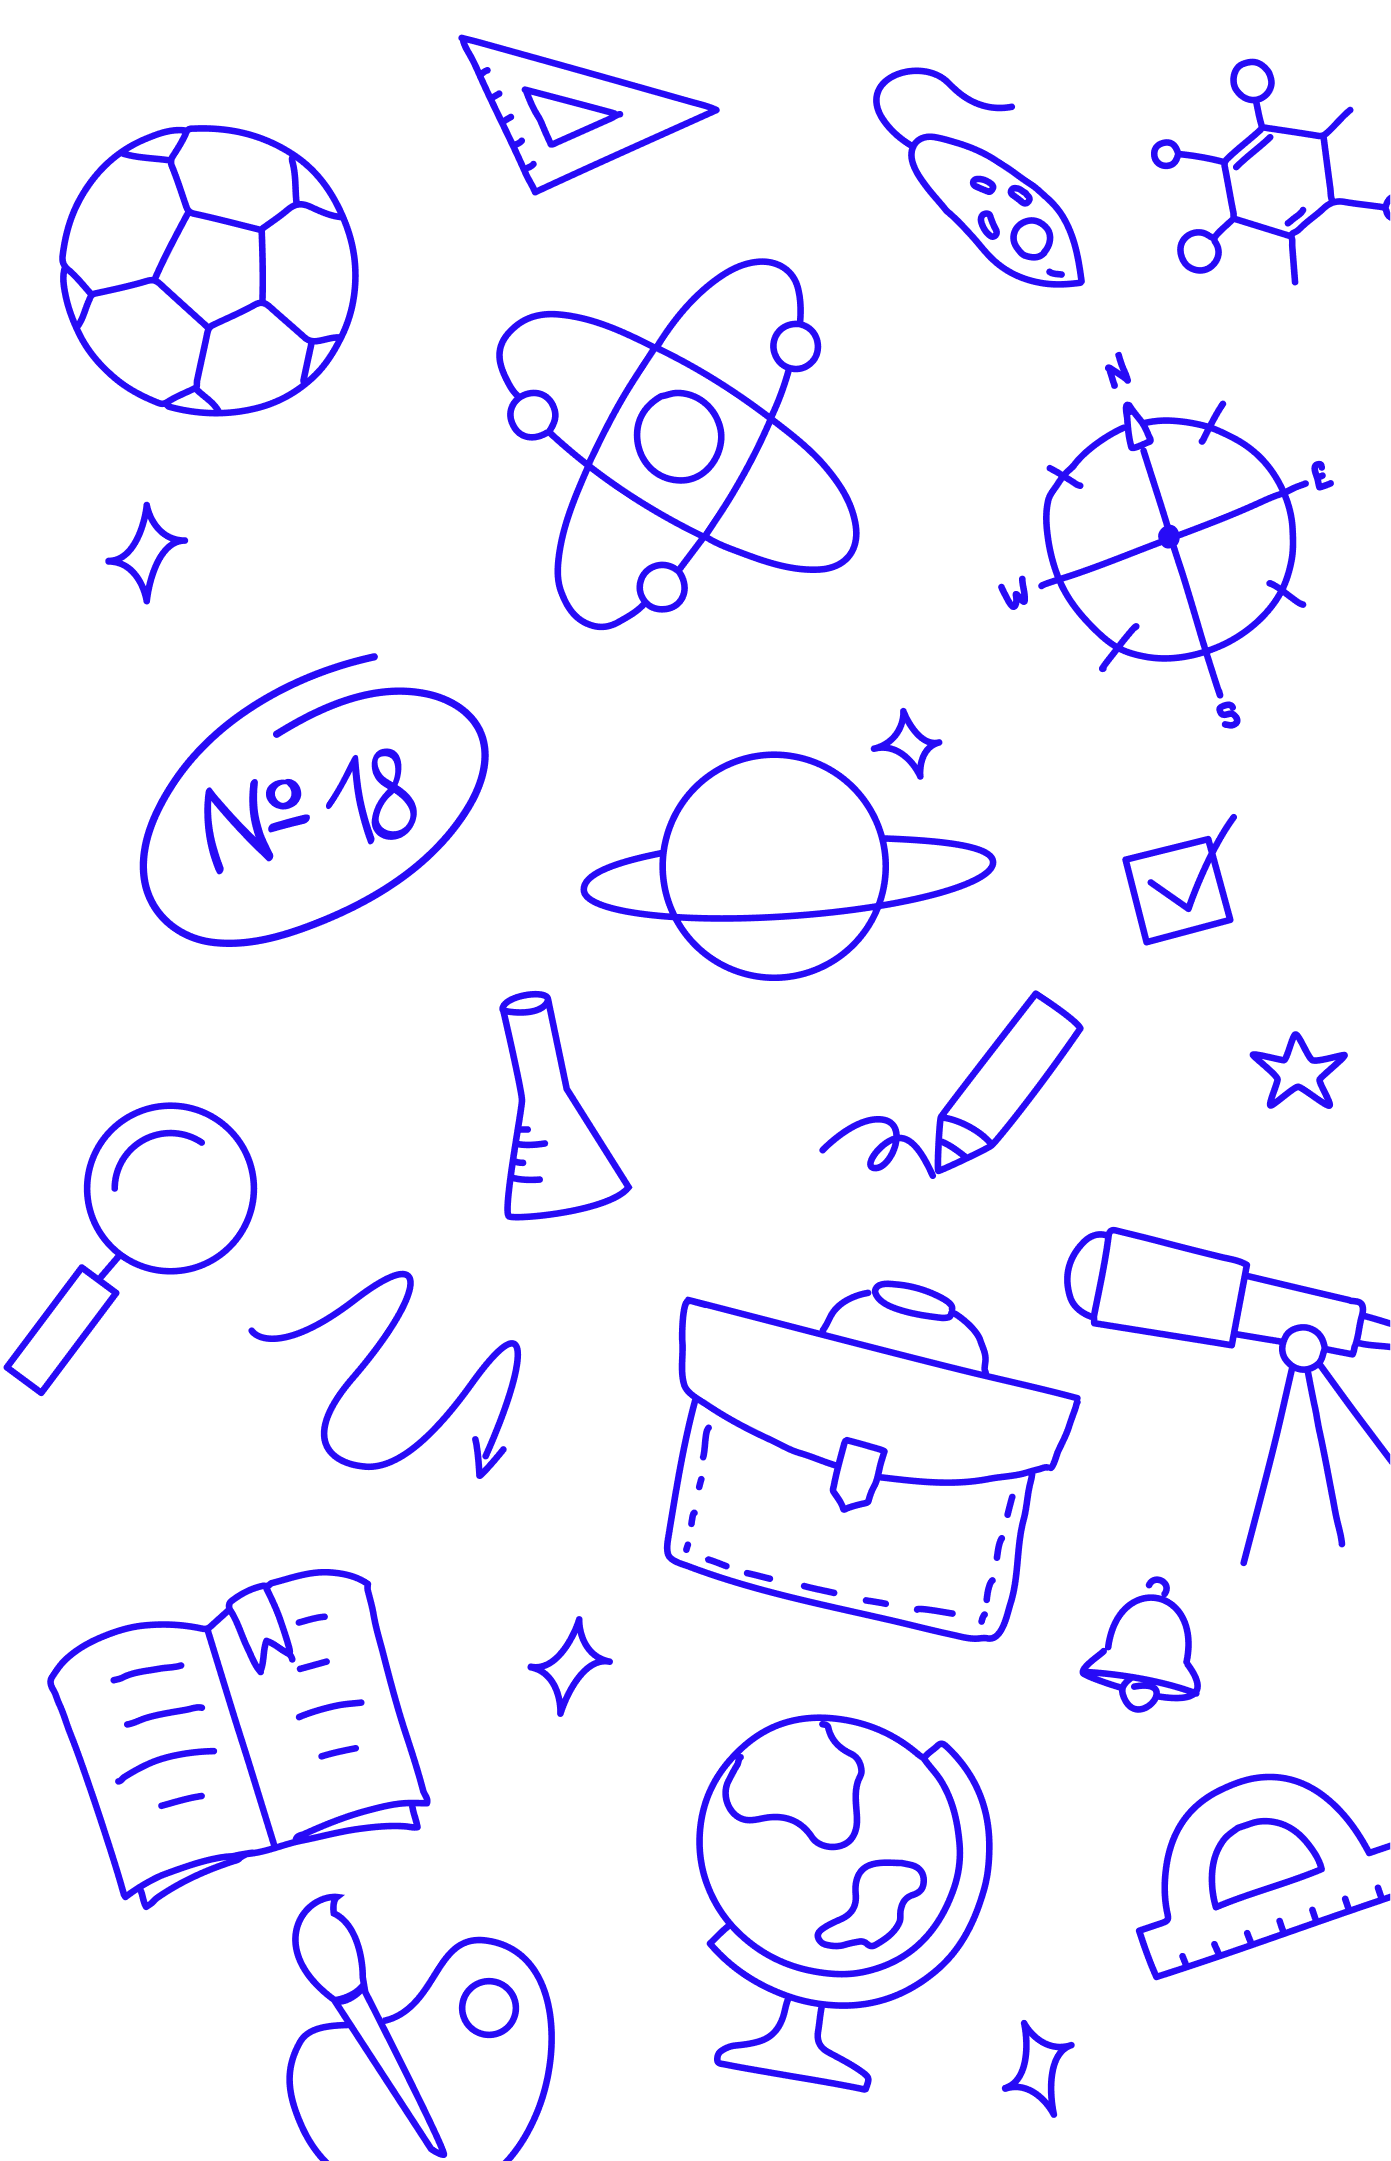 N
E
W
S
№ 18